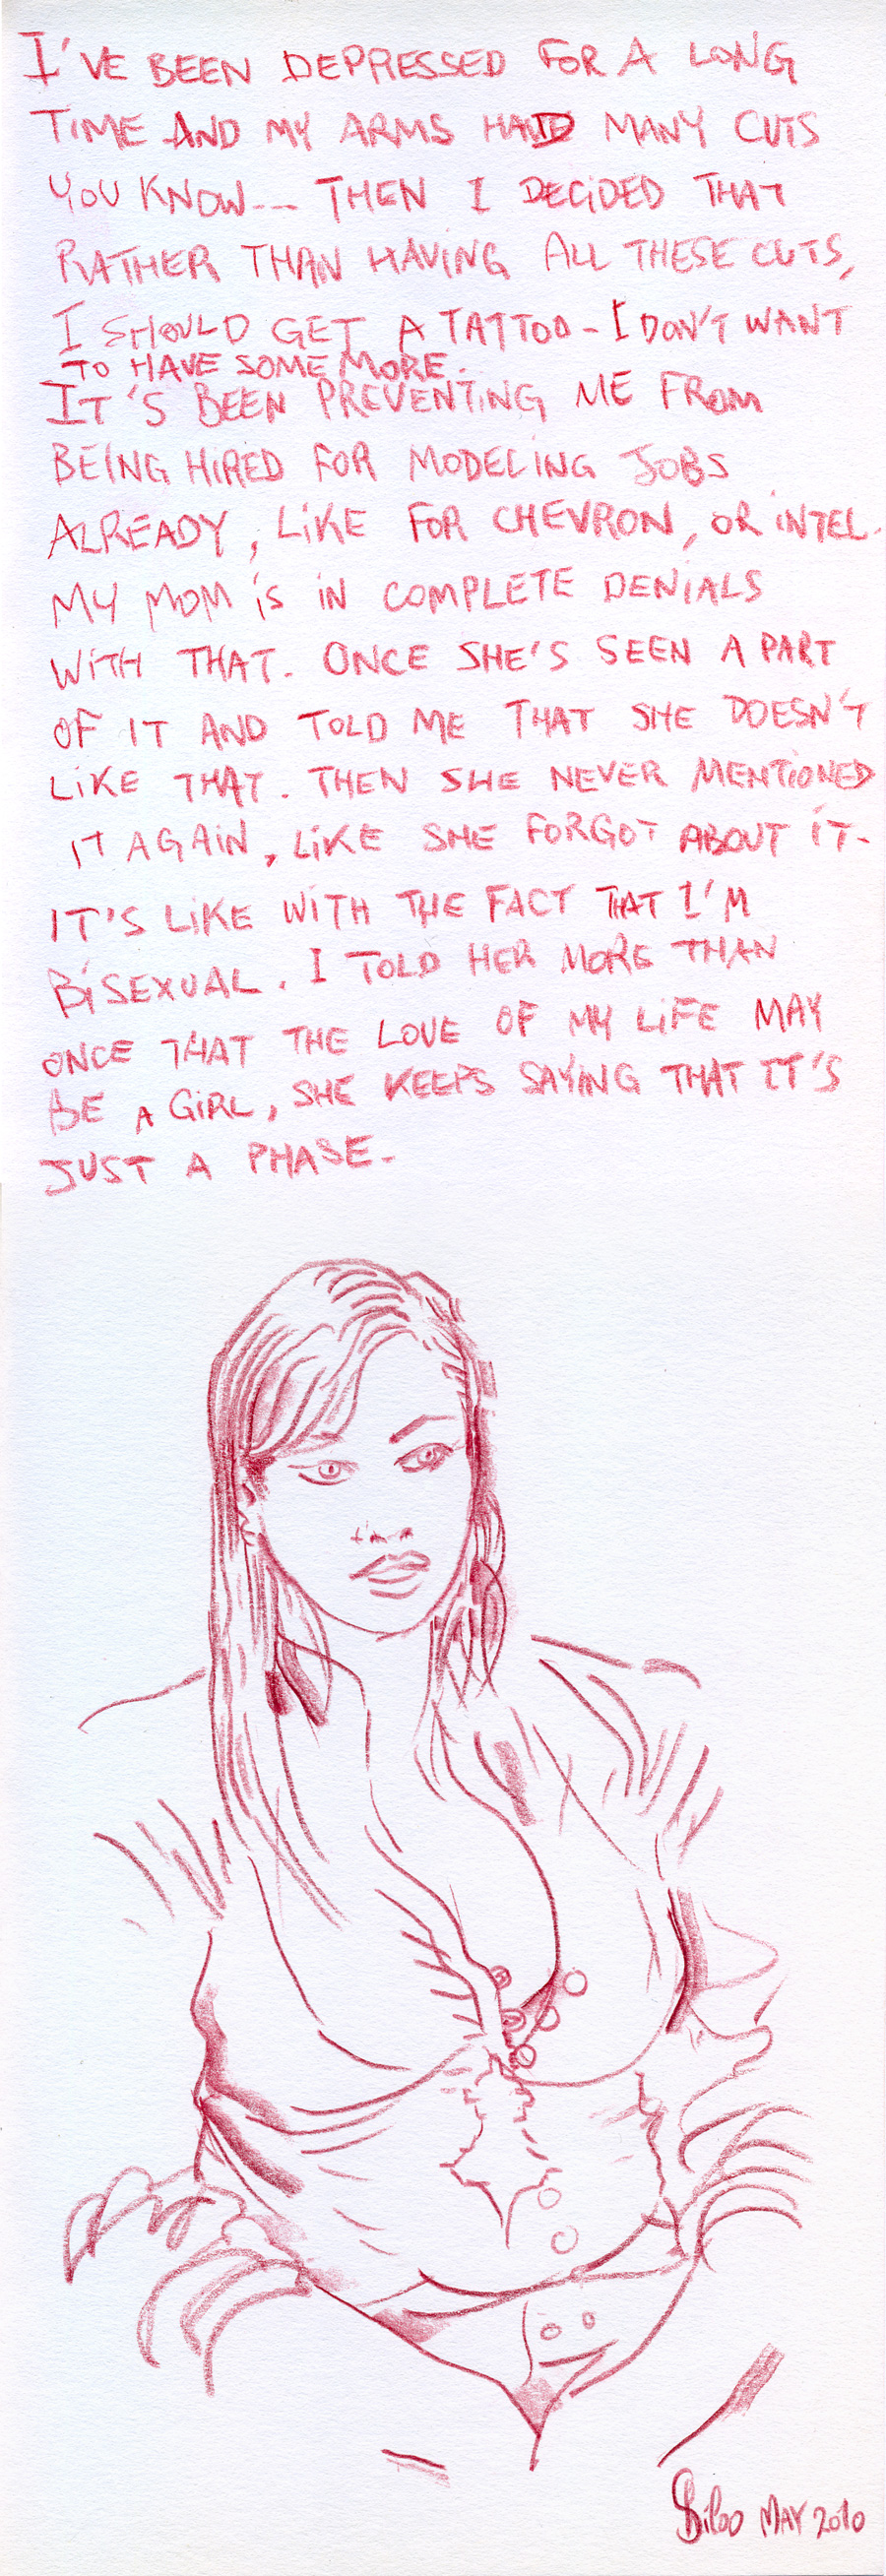 I'VE BEEN DEPRESSED FOR A LONG
TIME AND MY ARMS HAD MANY CUTS
YOU KNOW... THEN I DECIDED THAT
RATHER THAN HAVING ALL THESE CUTS,
I SHOULD GET A TATTOO - I DON'T WANT
TO HAVE SOME MORE.
IT'S BEEN PREVENTING ME FROM
BEING HIRED FOR MODELING JOBS
ALREADY, LIKE FOR CHEVRON, OR INTEL.
MY MOM IS IN COMPLETE DENIALS
WITH THAT. ONCE SHE'S SEEN A PART
OF IT AND TOLD ME THAT SHE DOESN'T
LIKE THAT. THEN SHE NEVER MENTIONED
IT AGAIN, LIKE SHE FORGOT ABOUT IT-
IT'S LIKE WITH THE FACT THAT I'M
BISEXUAL. I TOLD HER MORE THAN
ONCE THAT THE LOVE OF MY LIFE MAY
BE A GIRL, SHE KEEPS SAYING THAT IT'S
JUST A PHASE-
MAY 2010